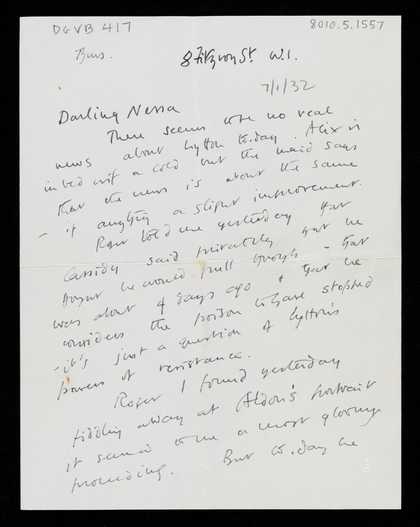 DGVB 417
8010.5.1557
8 Fitzroy St. W.1.
7/1/32
Darling Nessa
There seems to be no real
news about Lytton to.day. Alix is
in bed with a cold but the maid says
that the news is about the same
- if anything a slight improvement.
Roger told me yesterday that
Cassidy said privately that he
thought he would pull through - that
was about 4 days ago & that he
considers the poison to have stopped
- it's just a question of Lytton's
powers of resistance.
Roger I found yesterday
fiddling away at Aldous's portrait
it seemed to me a most gloomy
proceeding. But to.day he